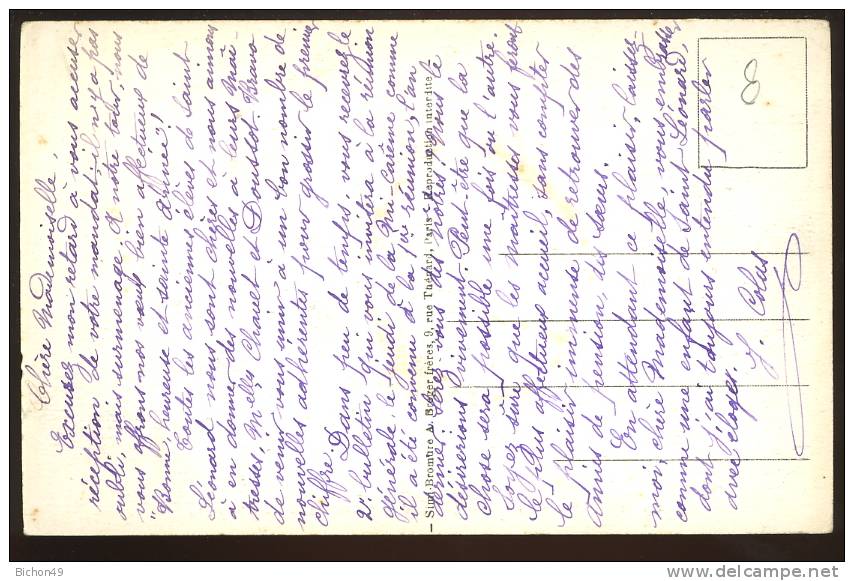 Chère Mademoiselle,
Excusez mon retard à vous accuser
réception de votre mandat: il n'y a pas
oubli, mais surmenage. A notre tour, nous
vous offrons nos vœux bien affectueux de
"Bonne, heureuse et sainte année!
Toutes les anciennes élèves de Saint
Léonard nous sont chères et nous aimons
à en donner des nouvelles à leurs Maî-
tresses. Melles Chaiet et Dousset-Bravo
de venir vous unir à un bon nombre de
nouvelles adhérentes pour grossir le premier
chiffre. Dans peu de temps, vous recevrez le
2e bulletin qui vous invitera à la réunion
générale, le jeudi de la Mi-Carême comme
il a été convenu à la 1re réunion, l'an
dernier. Serez-vous des nôtres, nous le
désirerions vivement. Peut-être que la
chose sera possible une fois ou l'autre.
Soyez sûre que les maîtresses vous feront
le plus affectueux accueil, sans compter
le plaisir immense de retrouver des
amies de pension, des sœurs.
En attendant ce plaisir, laissez-
moi, chère Mademoiselle, vous embrasser
comme une enfant de Saint Léonard,
dont j'ai toujours entendu parler
avec éloges. J. Colas
— Simili-Bromure A. Breger frères, 9, rue Thénard, Paris - Reproduction interdite
8
Bichon49
http://www.delcampe.net